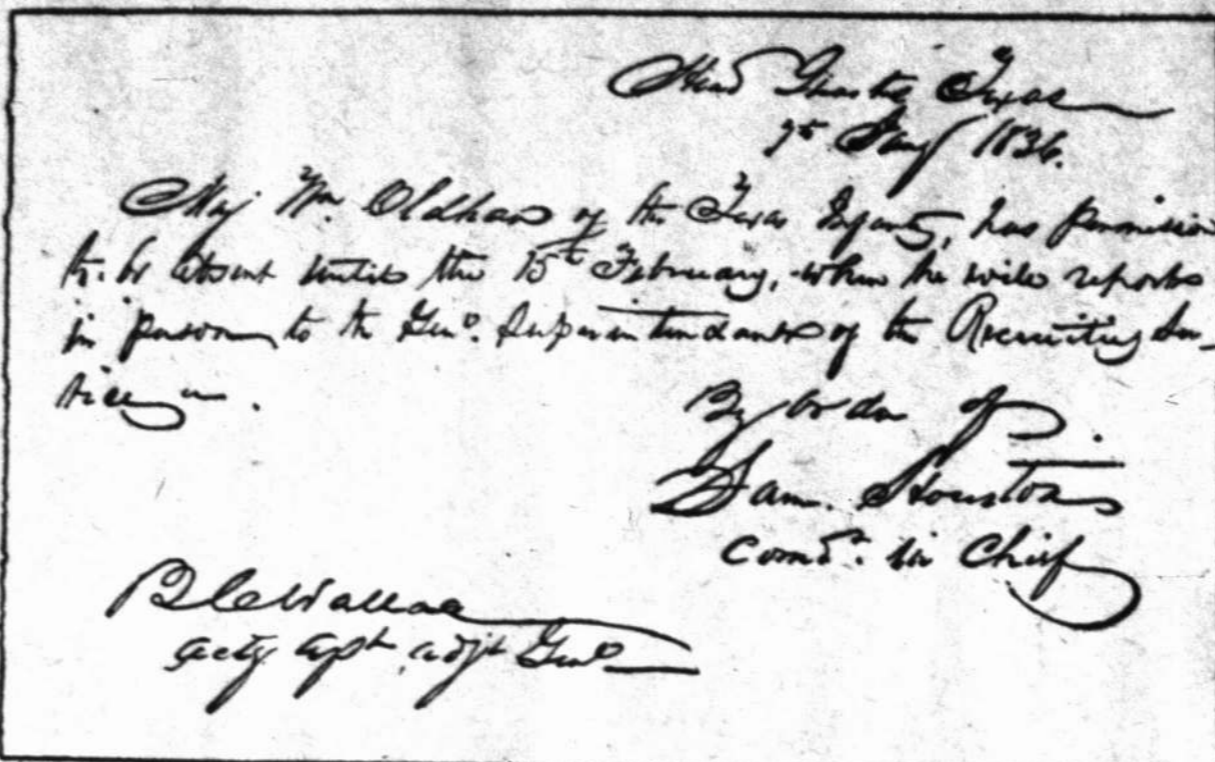 Head Quarters Texas
7th Jany 1836.
Maj Wm. Oldham of the Texas Infantry, has permission
to be absent until the 15th February, when he will report
in person to the Genl. Superintendant of the Recruiting Ser-
vice.
By order of
Sam. Houston
Comdr. in Chief
B C Wallace
actg asst adjt Genl